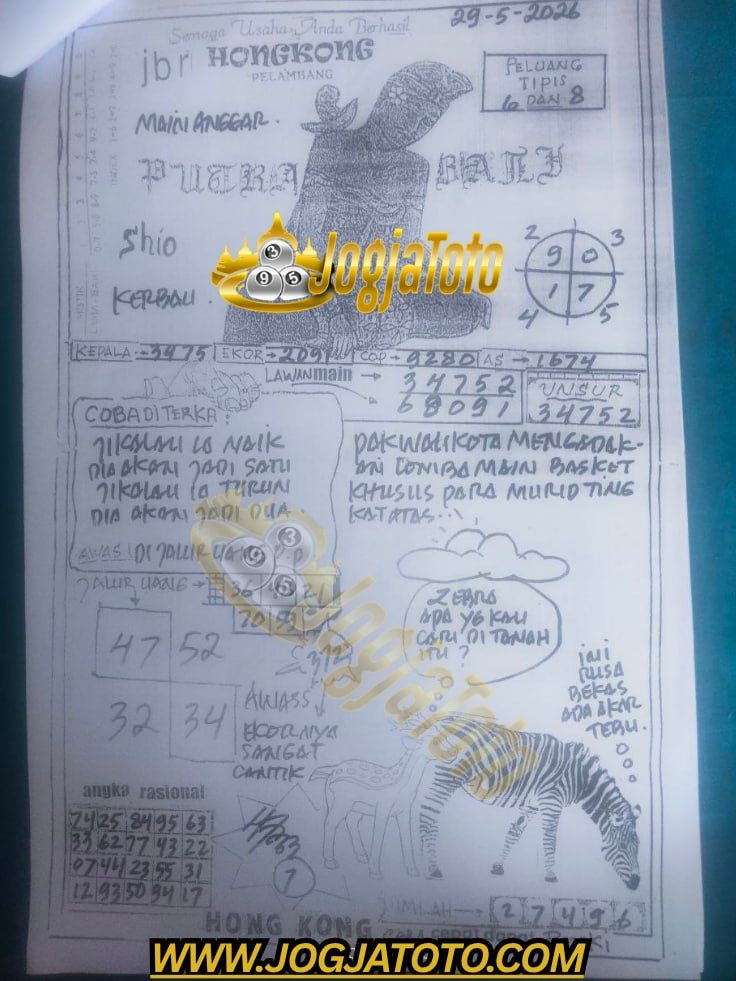 Semoga Usaha Anda Berhasil
29-5-2026
jbr HONGKONG
PELAMBANG
PELUANG
TIPIS
6 DAN 8
MAIN ANGGAR.
PUTRA BALI
Shio
KERBAU.
JogjaToto
3
9 5
2 3
9 0
1 7
4 5
KEPALA → 3475 EKOR → 2091 COP → 9280 AS → 1674
LAWAN main → 34752
68091
UNSUR
34752
COBA DITERKA:
JIKALAU IA NAIK
DIA AKAN JADI SATU
JIKALAU IA TURUN
DIA AKAN JADI DUA.
AWAS! DI JALUR
PAK WALIKOTA MENGADAK-
AN LOMBA MAIN BASKET
KHUSUS PARA MURID TING
KAT ATAS..
JALUR UANG → 36 21
47 52
32 34
ZEBRA
ADA YG KAU
CARI DI TANAH
ITU?
INI
RUSA
BEKAS
ADA AKAR
TEBU.
AWASS
EKORNYA
SANGAT
CANTIK
JogjaToto
angka rasional
74 25 84 95 63
33 62 77 43 22
07 44 23 55 31
12 93 50 94 17
7
JUMLAH → 2 7 4 9 6
HONG KONG
WWW.JOGJATOTO.COM